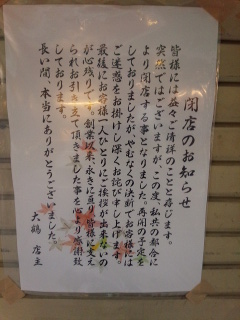 閉店のお知らせ
皆様には益々ご清祥のことと存じます。
突然ではございますが、この度、私共の都合に
より閉店する事となりました。再開の予定を
しておりましたが、やむなくの決断でお客様には
ご迷惑をお掛けし深くお詫び申し上げます。
最後にお客様一人ひとりにご挨拶が出来ないの
が心残りです。創業以来、永きに亘り皆様に支え
られお引き立て頂きました事を心より感謝致
しております。
長い間、本当にありがとうございました。
大鶴 店主